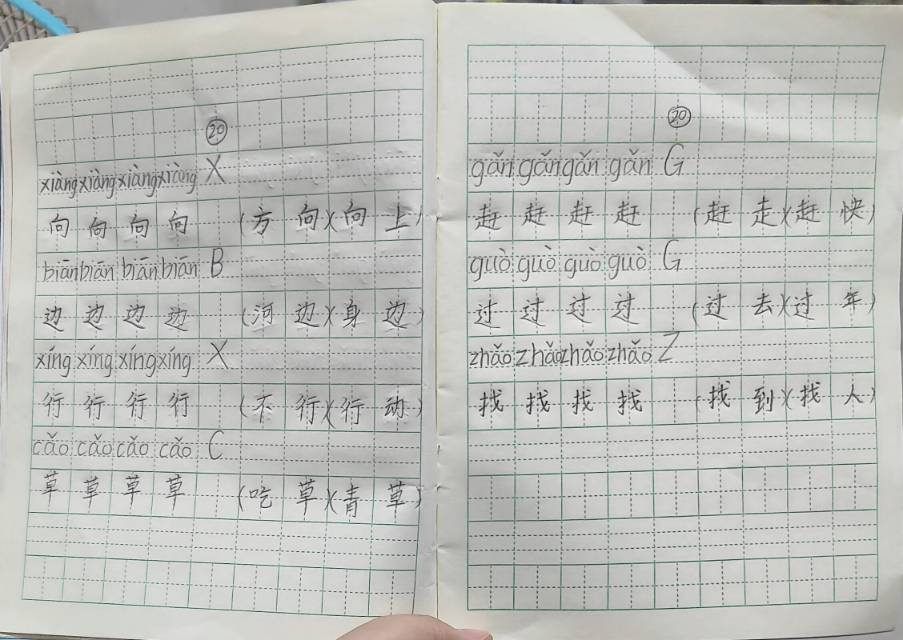 ⑳
xiàng xiàng xiàng xiàng X
向 向 向 向 (方 向)(向 上)
biān biān biān biān B
边 边 边 边 (河 边)(身 边)
xíng xíng xíng xíng X
行 行 行 行 (不 行)(行 动)
cǎo cǎo cǎo cǎo C
草 草 草 草 (吃 草)(青 草)
⑳
gǎn gǎn gǎn gǎn G
赶 赶 赶 赶 (赶 走)(赶 快)
guò guò guò guò G
过 过 过 过 (过 去)(过 年)
zhǎo zhǎo zhǎo zhǎo Z
找 找 找 找 (找 到)(找 人)